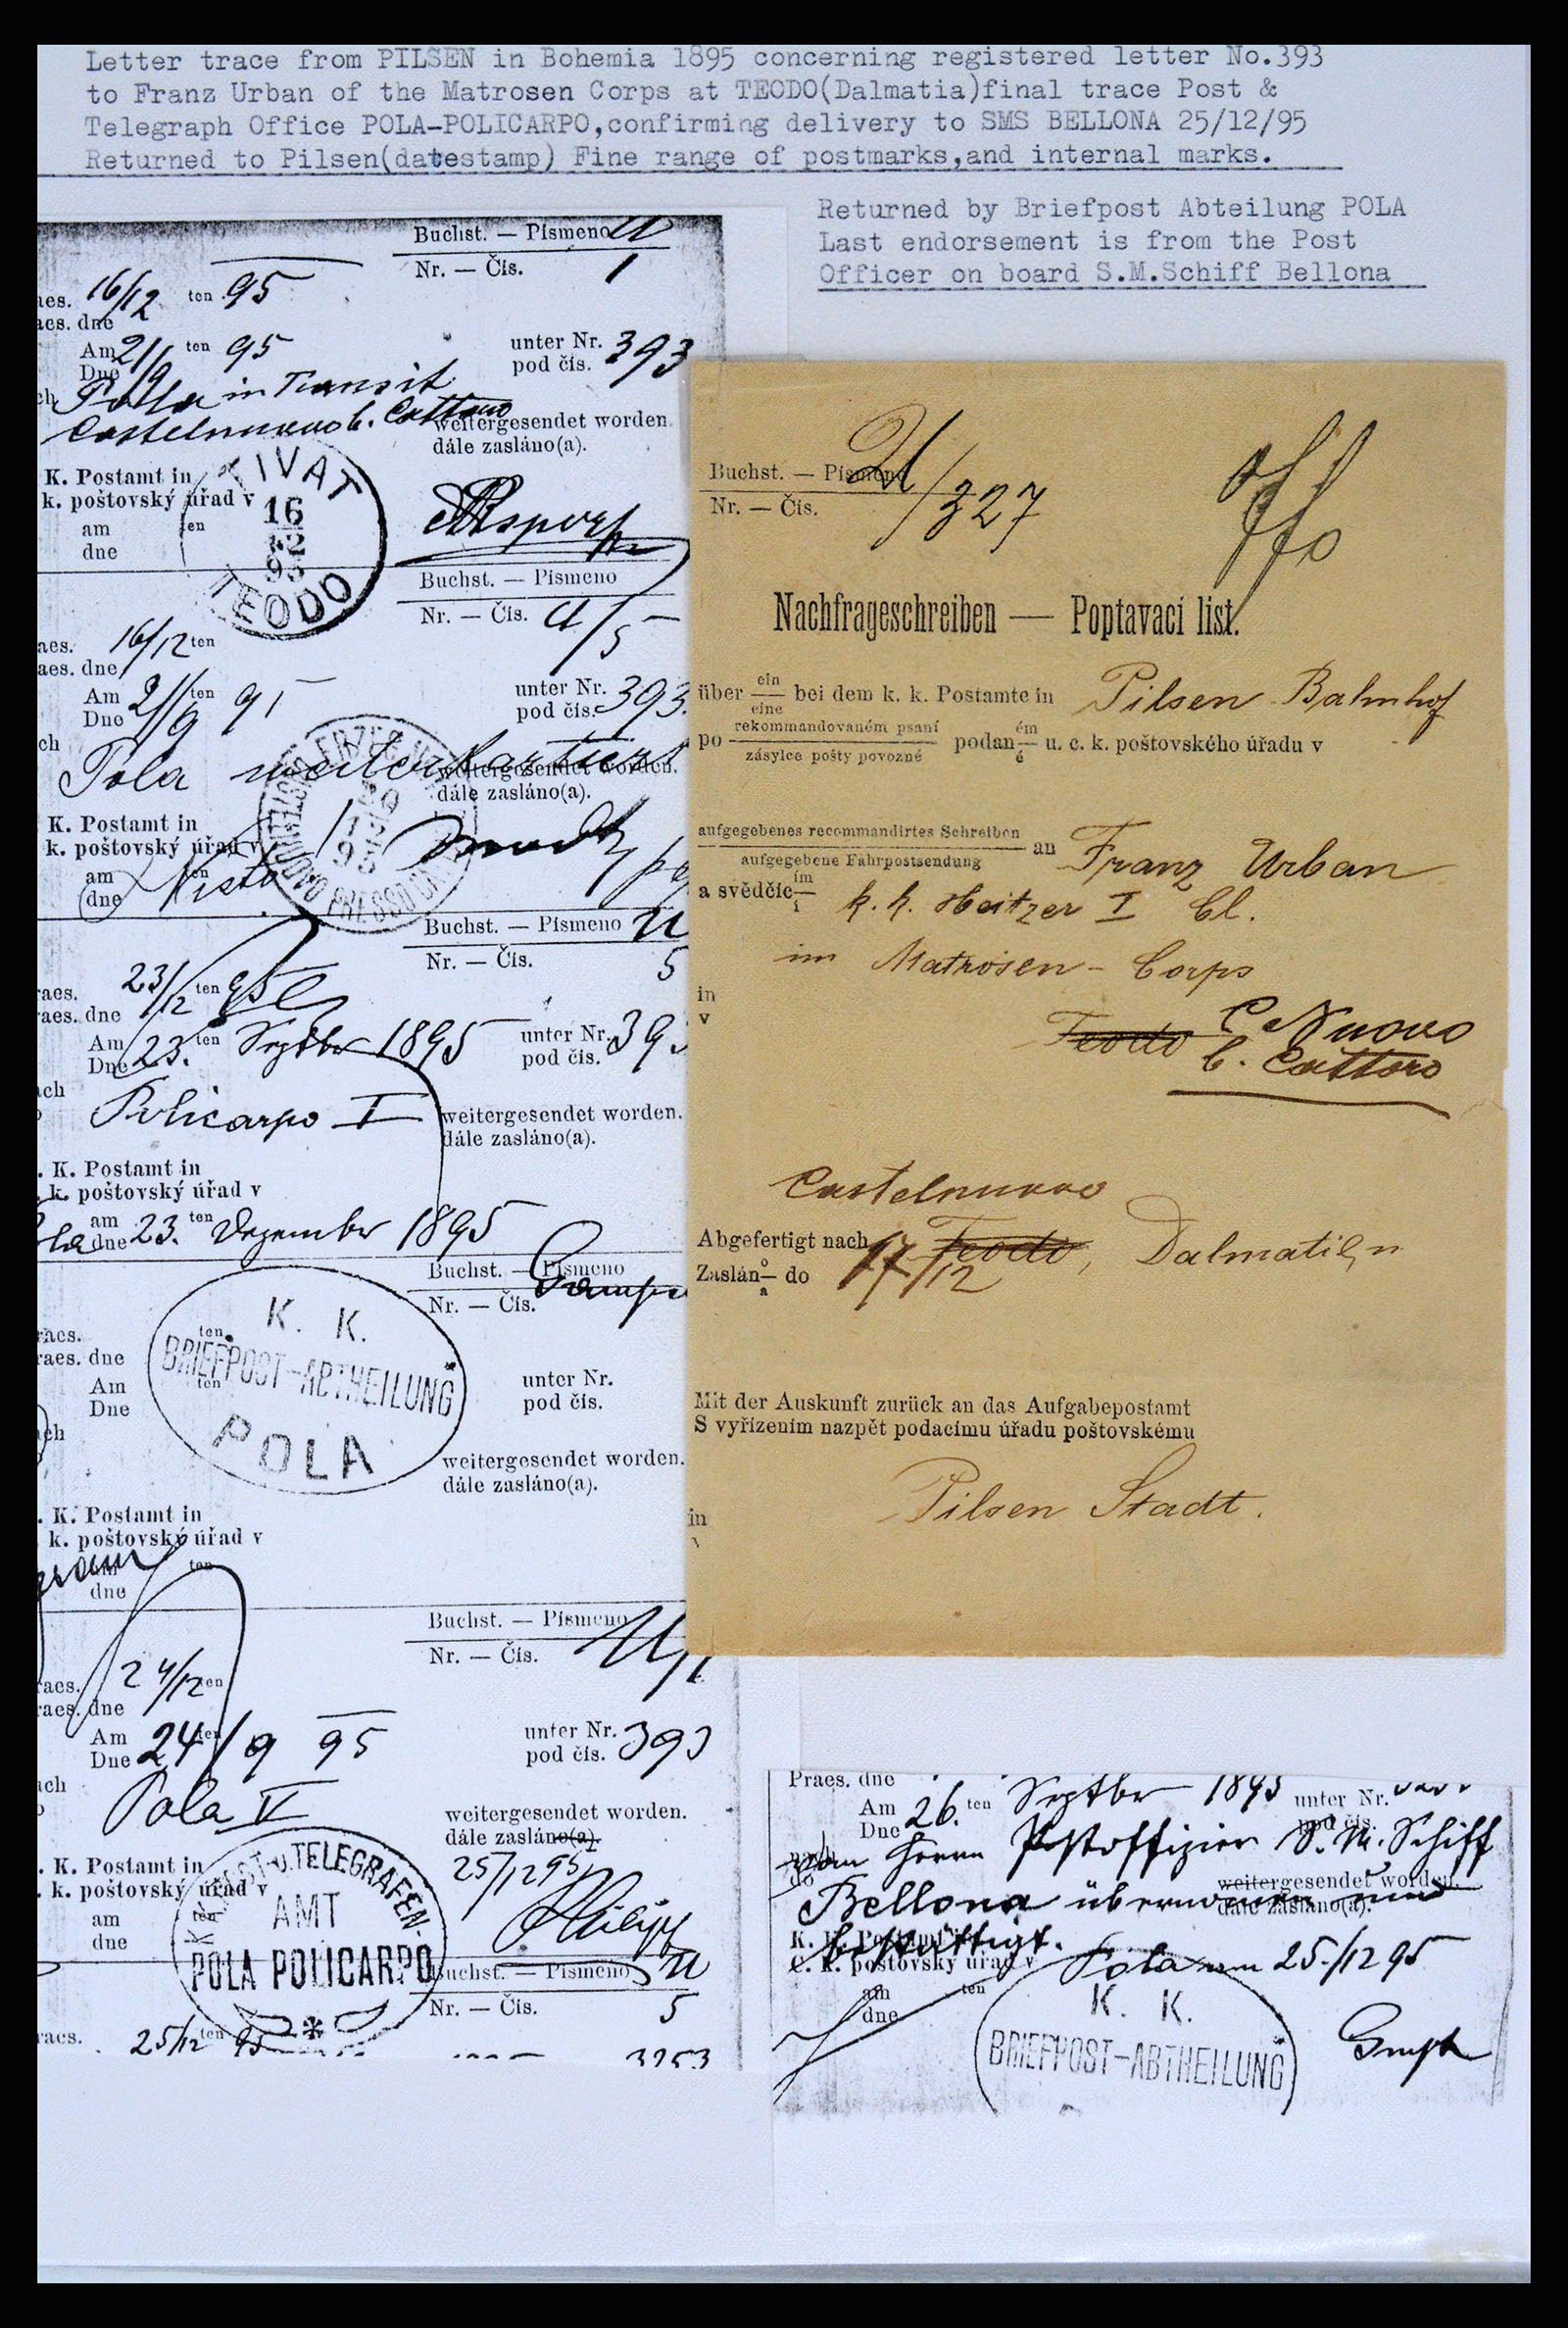 Letter trace from PILSEN in Bohemia 1895 concerning registered letter No.393
to Franz Urban of the Matrosen Corps at TEODO(Dalmatia)final trace Post &
Telegraph Office POLA-POLICARPO,confirming delivery to SMS BELLONA 25/12/95
Returned to Pilsen(datestamp) Fine range of postmarks,and internal marks.
Returned by Briefpost Abteilung POLA
Last endorsement is from the Post
Officer on board S.M.Schiff Bellona
Buchst. — Písmeno U
Nr. — Čís. 1
aes. 16/12 ten 95
aes. dne
Am 21/9 ten 95 unter Nr. 393
Dne pod čís.
ch Polla in Transit
Castelnuovo b. Cattaro weitergesendet worden.
dále zasláno(a).
K. Postamt in
k. poštovský úřad v
am ten
dne
TIVAT
16
12
95
TEODO
Buchst. — Písmeno
Nr. — Čís. U/5
aes. 16/12 ten
aes. dne
Am 21/9 ten 95 unter Nr. 393.
Dne pod čís.
ch
Pola weiterkartiert
weitergesendet worden.
dále zasláno(a).
K. Postamt in
k. poštovský úřad v
am ten
dne
Buchst. — Písmeno U
Nr. — Čís. 5
raes. 23/12 ten 95
raes. dne
Am 23. ten Septber 1895 unter Nr. 393
Dne pod čís.
ach
Policarpo I weitergesendet worden.
dále zasláno(a).
. K. Postamt in
. k. poštovský úřad v
am
dne 23. ten Dezember 1895
Buchst. — Písmeno
Nr. — Čís.
K. K.
BRIEFPOST-ABTHEILUNG
POLA
raes. ten
raes. dne
Am ten unter Nr.
Dne pod čís.
ach
weitergesendet worden.
dále zasláno(a).
. K. Postamt in
. k. poštovský úřad v
ten
dne
Buchst. — Písmeno U
Nr. — Čís. 1
raes. 24/12 ten
raes. dne
Am 24 ten/9 95 unter Nr. 393
Dne pod čís.
ach
Pola V
weitergesendet worden.
dále zasláno(a).
. K. Postamt in
. k. poštovský úřad v
25/12 95
am ten
dne
POST-u.TELEGRAFEN-
AMT
POLA POLICARPO
Buchst. — Písmeno U
Nr. — Čís. 5
raes. 25/12 ten 95
3253
Buchst. — Písmeno U
Nr. — Čís. /327
Nachfrageschreiben — Poptavací list.
über ein/eine bei dem k. k. Postamte in Pilsen Bahnhof
po rekommandovaném psaní / zásylce pošty povozné podan ém/é u. c. k. poštovského úřadu v
aufgegebenes recommandirtes Schreiben / aufgegebene Fahrpostsendung an Franz Urban
a svědčíc ím/í k. k. Heitzer I Cl.
im Matrosen-Corps
in
v
Teodo C Nuovo
b. Cattaro
Castelnuovo
Abgefertigt nach Teodo, Dalmatien
Zaslán o/a do 17/12
Mit der Auskunft zurück an das Aufgabepostamt
S vyřízením nazpět podacímu úřadu poštovskému
Pilsen Stadt.
in
v
Praes. dne
Am 26. ten Septber 1895 unter Nr.
Dne pod čís.
vom Herrn Postoffizier S. M. Schiff
do
weitergesendet worden.
Bellona übernommen und
dále zasláno(a).
bestättigt.
K. K. Postamt in
C. k. poštovský úřad v
Pola am 25./12 95
am ten
dne
K. K.
BRIEFPOST-ABTHEILUNG